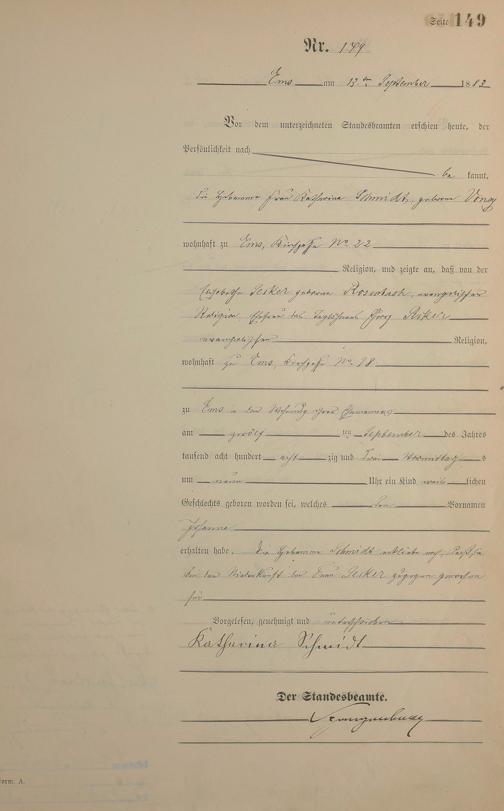 Seite 149
Nr. 149
Ems am 13ten September 1883
Vor dem unterzeichneten Standesbeamten erschien heute, der
Persönlichkeit nach
be kannt,
die Hebamme Frau Katharina Schmidt, geborene
wohnhaft zu Ems, Kirchgasse No 22
Religion, und zeigte an, daß von der
Elisabetha geborene Rosenbach, evangelischer
Religion, Ehefrau des Taglöhners Georg
evangelischer Religion,
wohnhaft zu Ems, Kirchgasse No
zu Ems in der Wohnung ihres Ehemannes
am zwölf ten September des Jahres
tausend acht hundert acht zig und drei Vormittag s
um neun Uhr ein Kind weib lichen
Geschlechts geboren worden sei, welches den Vornamen
Johanna
erhalten habe. Die Hebamme Schmidt erklärte noch, daß sie
bei der Niederkunft der Frau zugegen gewesen
sei
Vorgelesen, genehmigt und unterschrieben
Katharina Schmidt
Der Standesbeamte.
Form. A.